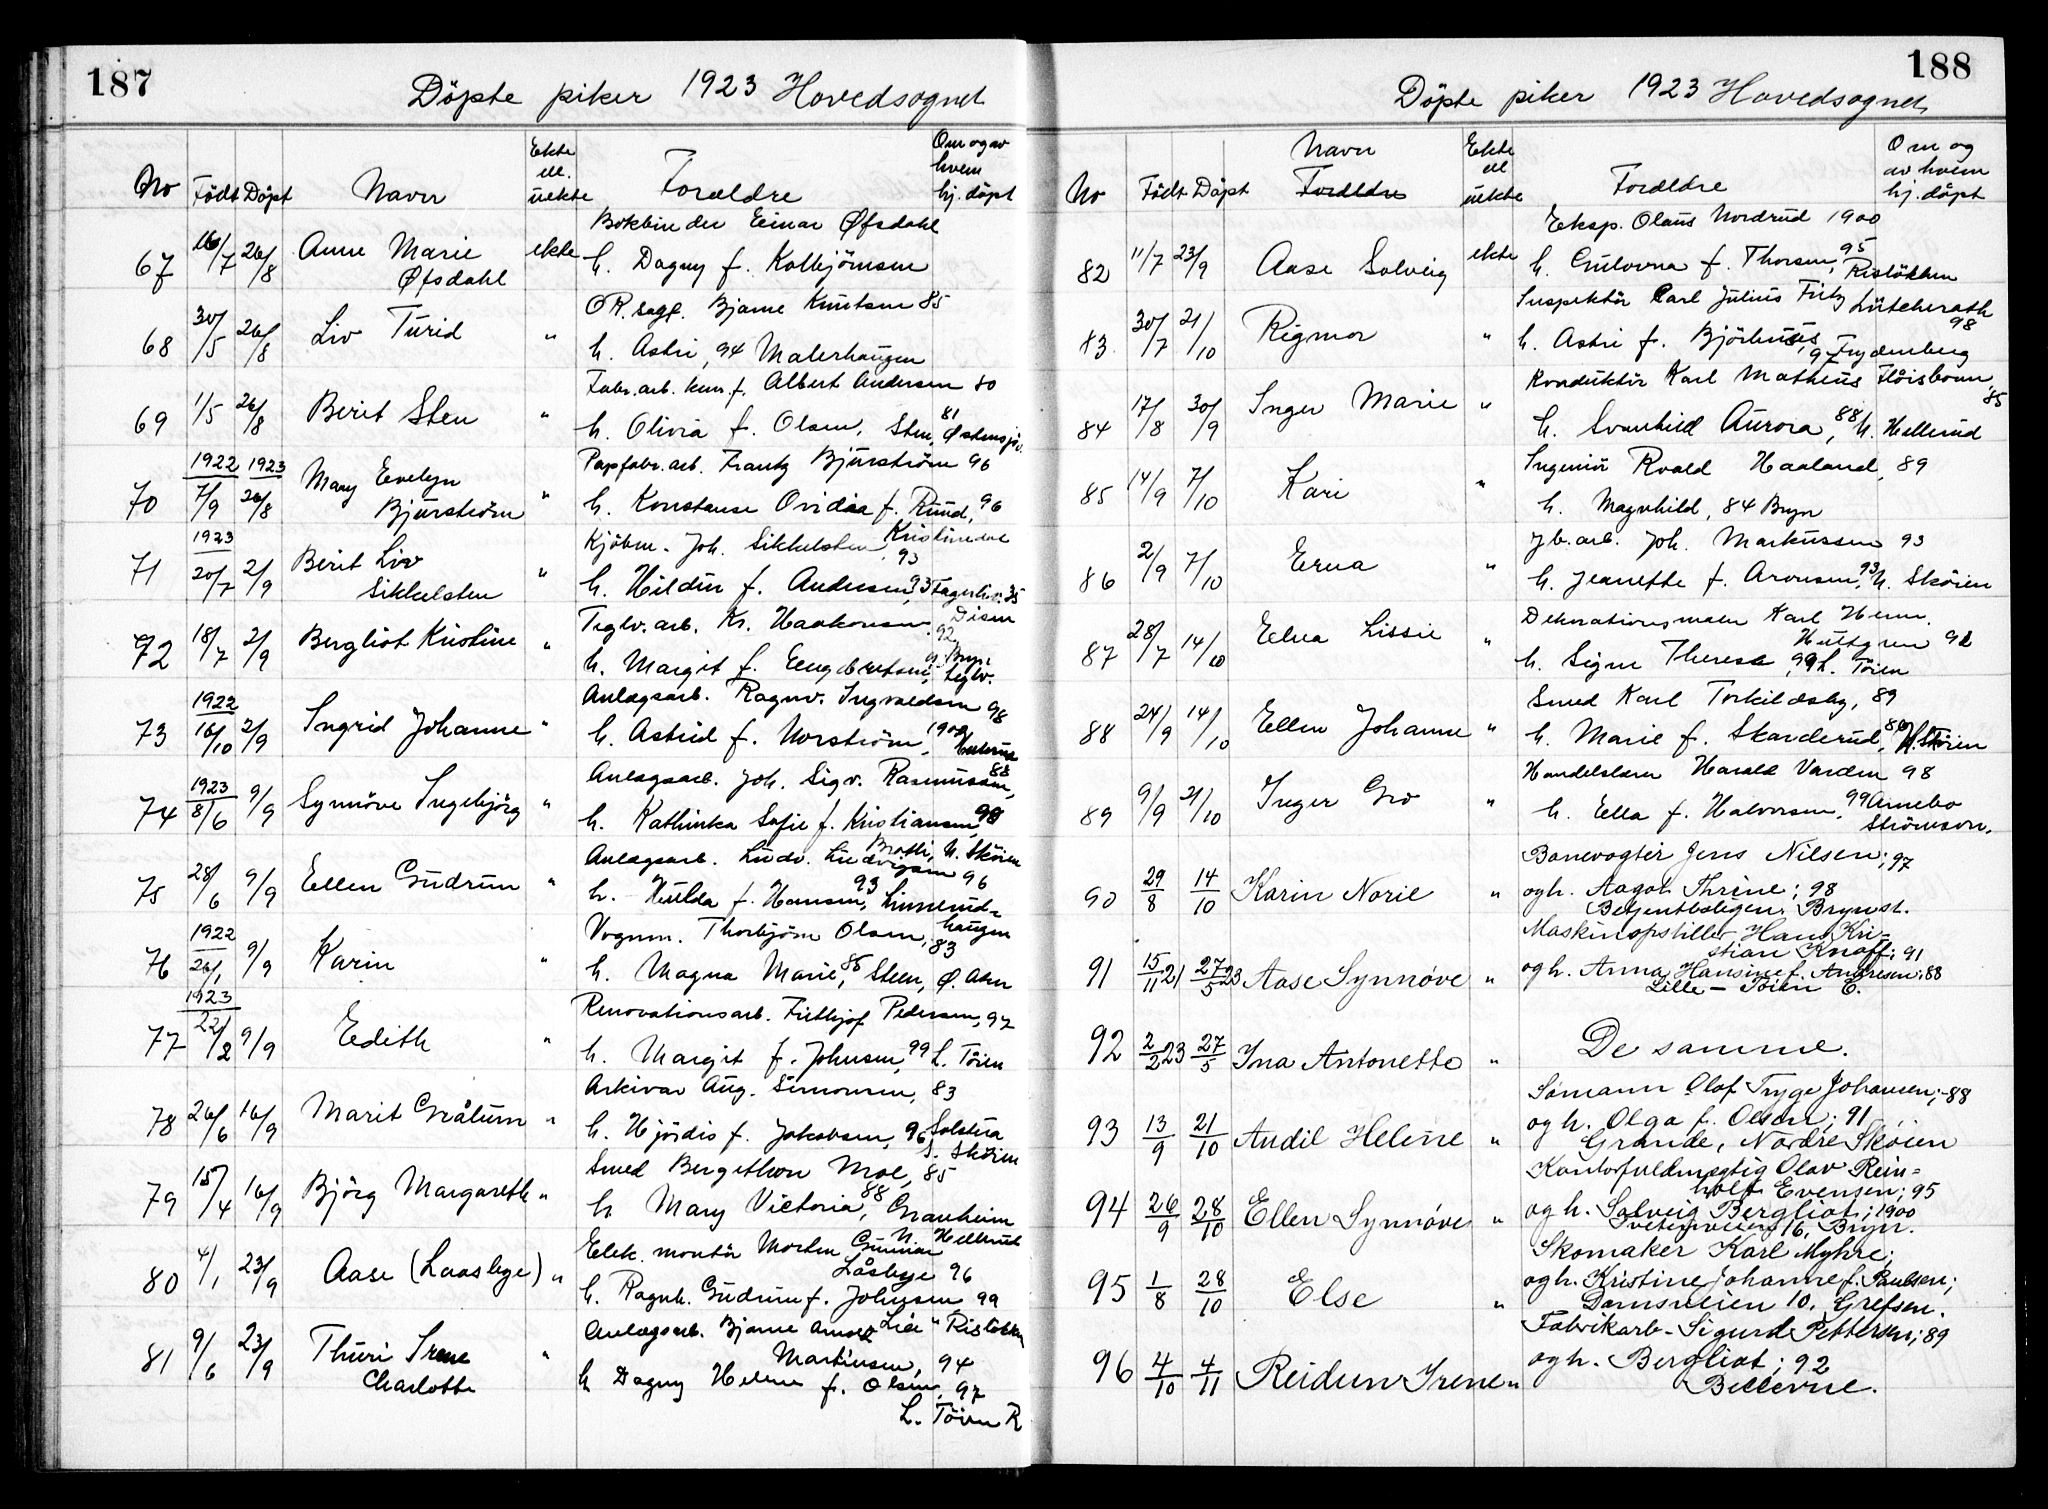 187
Döpte piker 1923 Hovedsognet
No Födt Döpt Navn Ekte el. uekte Foreldre Om og av hvem hj. döpt
67 16/7 26/8 Anne Marie Øfsdahl ekte Bokbinder Einar Øfsdahl
h. Dagny f. Kolbjörnsen
68 30/5 26/8 Liv Turid " O.R.sagf. Bjarne Knutsen 85
h. Astri, 94 Malerhaugen
69 1/5 26/8 Berit Sten " Fabr.arb. kun.f. Albert Andersen 80
h. Olivia f. Olsen, 81 Sten, Østensjö
1922 1923
70 7/9 26/8 Mary Evelyn Bjurström " Papfabr.arb. Frantz Bjurström 96
h. Konstanse Ovidia f. Ruud, 96
1923
71 20/7 2/9 Berit Liv Sikkelsten " Kjöbm. Joh. Sikkelsten 93
h. Hildur f. Andersen, 93
72 18/7 2/9 Bergliot Kristine " Teglv.arb. Kr. Haakonsen 92
h. Margit f. Engebretsen, Bryn Teglv.
1922
73 16/10 2/9 Ingrid Johanne " Anlægsarb. Ragnv. Ingvaldsen 98
h. Astrid f. Norström, 1900
1923
74 8/6 9/9 Synnöve Ingebjörg " Anlægsarb. Joh. Sigv. Rasmussen, 88
h. Kathinka Sofie f. Kristiansen, 98
Bratli, N. Sköien
75 28/6 9/9 Ellen Gudrun " Anlægsarb. Ludv. Ludvigsen 96
h. Hulda f. Hansen, 93 Linnerud-
haugen
1922
76 26/1 9/9 Karin " Vognm. Thorbjörn Olsen, 83
h. Magna Marie, 86 Steen, Ø. Aker
1923
77 22/2 9/9 Edith " Renovationsarb. Fritjof Pedersen, 97
h. Margit f. Johnsen, 99 L. Töien
78 26/6 16/9 Marit Gråtun " Arkivar Aug. Simonsen, 83
h. Hjördis f. Jakobsen, 96 Solstua
S. Sköien
79 15/4 16/9 Björg Margareth " Smed Bergithon Moe, 85
h. Mary Victoria, 88 Granheim
N. Hellerud
80 4/1 23/9 Aase (Laasbye) " Elek. montör Morten Gunnar
Låsbye 96
h. Ragnh. Gudrun f. Johnsen 99
81 9/6 23/9 Thuri Irene Charlotte " Anlægsarb. Bjarne
Martinsen, 94
h. Dagny Helene f. Olsen, 97
L. Töien R
188
Döpte piker 1923 Hovedsognet
No Födt Döpt Navn Foreldre Ekte el uekte Foreldre Om og av hvem hj. döpt
82 11/7 23/9 Aase Solveig ekte Eksp. Olaus Nordrud 1900
h. Gulovna f. Thorsen, 95 Ristökken
83 30/7 21/10 Rigmor " Inspektör Carl Julius Fritz Lütcherath
98
h. Astri f. Björhuus, 97 Frydenberg
84 17/8 30/9 Inger Marie " Konduktör Karl Matheus Flöisbonn,
85
h. Svanhild Aurora, 88, N. Hellerud
85 14/9 7/10 Kari " Ingeniör Roald Haaland, 89
h. Magnhild, 84 Bryn
86 2/9 7/10 Erna " Jb.arb. Joh. Markussen 93
h. Jeanette f. Aronsen, 93, N. Sköien
87 28/7 14/10 Edna Lissie " Dekorationsmaler Karl Henn.
Hultgren 92
h. Signe Therese, 99, L. Töien
88 24/9 14/10 Ellen Johanne " Smed Karl Torkildsby, 89
h. Marie f. Skarderud, N. Sköien
89 9/9 21/10 Inger Gro " Handelslærer Harald Varden 98
h. Ella f. Halvorsen, 99 Arnebo
Strömsvn.
90 29/8 14/10 Karin Norie " Banevogter Jens Nilsen; 97
og h. Aagot Thrine; 98
Betjentboligen. Brynst.
91 15/11 21 27/5 23 Aase Synnøve " Maskinopstiller Hans Kri-
stian Knoff; 91
og h. Anna Hansine f. Andresen; 88
Lille-Tøien E.
92 2/2 23 27/5 Ina Antonette " De samme.
93 13/9 21/10 Audil Helene " Sømann Olof Tryge Johansen; -88
og h. Olga f. Olsen; 91
Grande, Nordre Skøien
94 26/9 28/10 Ellen Synnøve " Kontorfuldmegtig Olav Rein-
holt Evensen; 95
og h. Solveig Bergliot; 1900
Tvetenveien 16, Bryn.
95 1/8 28/10 Else " Skomaker Karl Myhre;
og h. Kristine Johanne f. Paulsen;
Damsveien 10. Grefsen.
96 4/10 4/11 Reidun Irene " Fabrikarb. Sigurd Pettersen; 89
og h. Bergliot; 92
Bellevue.